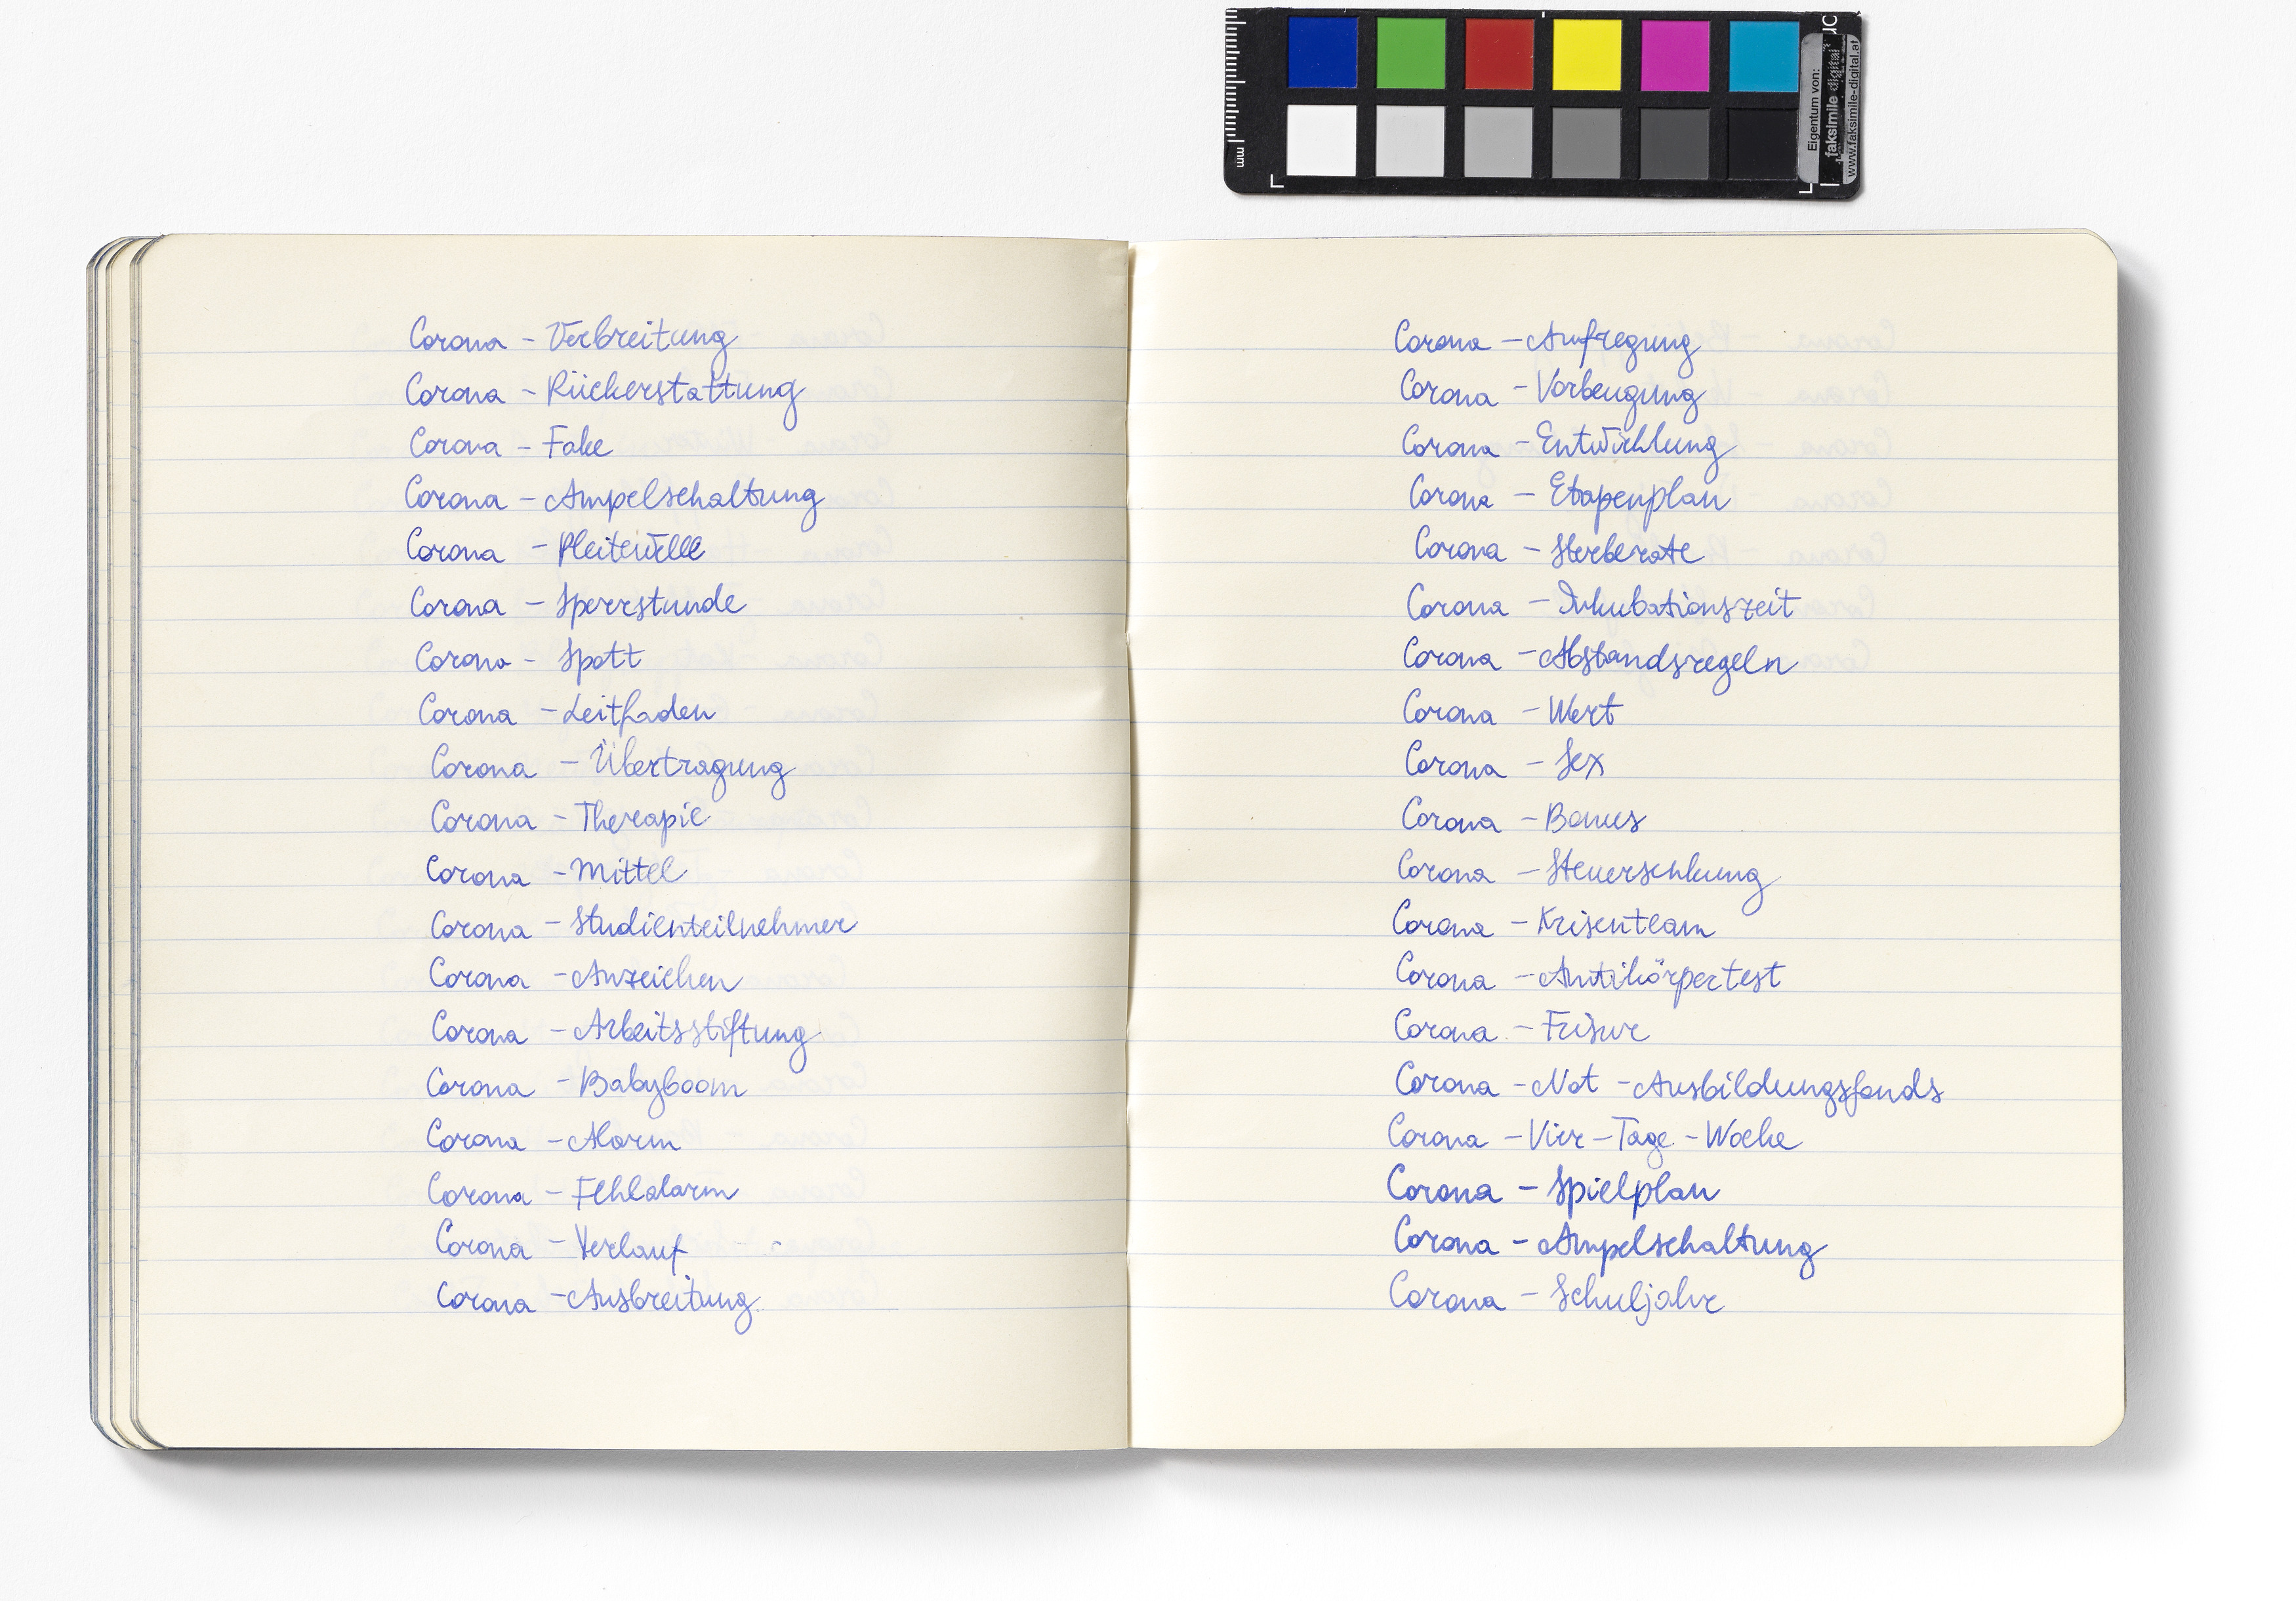 Eigentum von:
faksimile digital
www.faksimile-digital.at
mm
Corona - Verbreitung
Corona - Rückerstattung
Corona - Fake
Corona - Ampelschaltung
Corona - Pleitewelle
Corona - Sperrstunde
Corona - Spott
Corona - Leitfaden
Corona - Übertragung
Corona - Therapie
Corona - Mittel
Corona - Studienteilnehmer
Corona - Anzeichen
Corona - Arbeitsstiftung
Corona - Babyboom
Corona - Alarm
Corona - Fehlalarm
Corona - Verlauf
Corona - Ausbreitung
Corona - Aufregung
Corona - Vorbeugung
Corona - Entwicklung
Corona - Etapenplan
Corona - Sterberate
Corona - Inkubationszeit
Corona - Abstandsregeln
Corona - Wert
Corona - Sex
Corona - Bonus
Corona - Steuersenkung
Corona - Krisenteam
Corona - Antikörpertest
Corona - Frisur
Corona - Not - Ausbildungsfonds
Corona - Vier - Tage - Woche
Corona - Spielplan
Corona - Ampelschaltung
Corona - Schuljahr